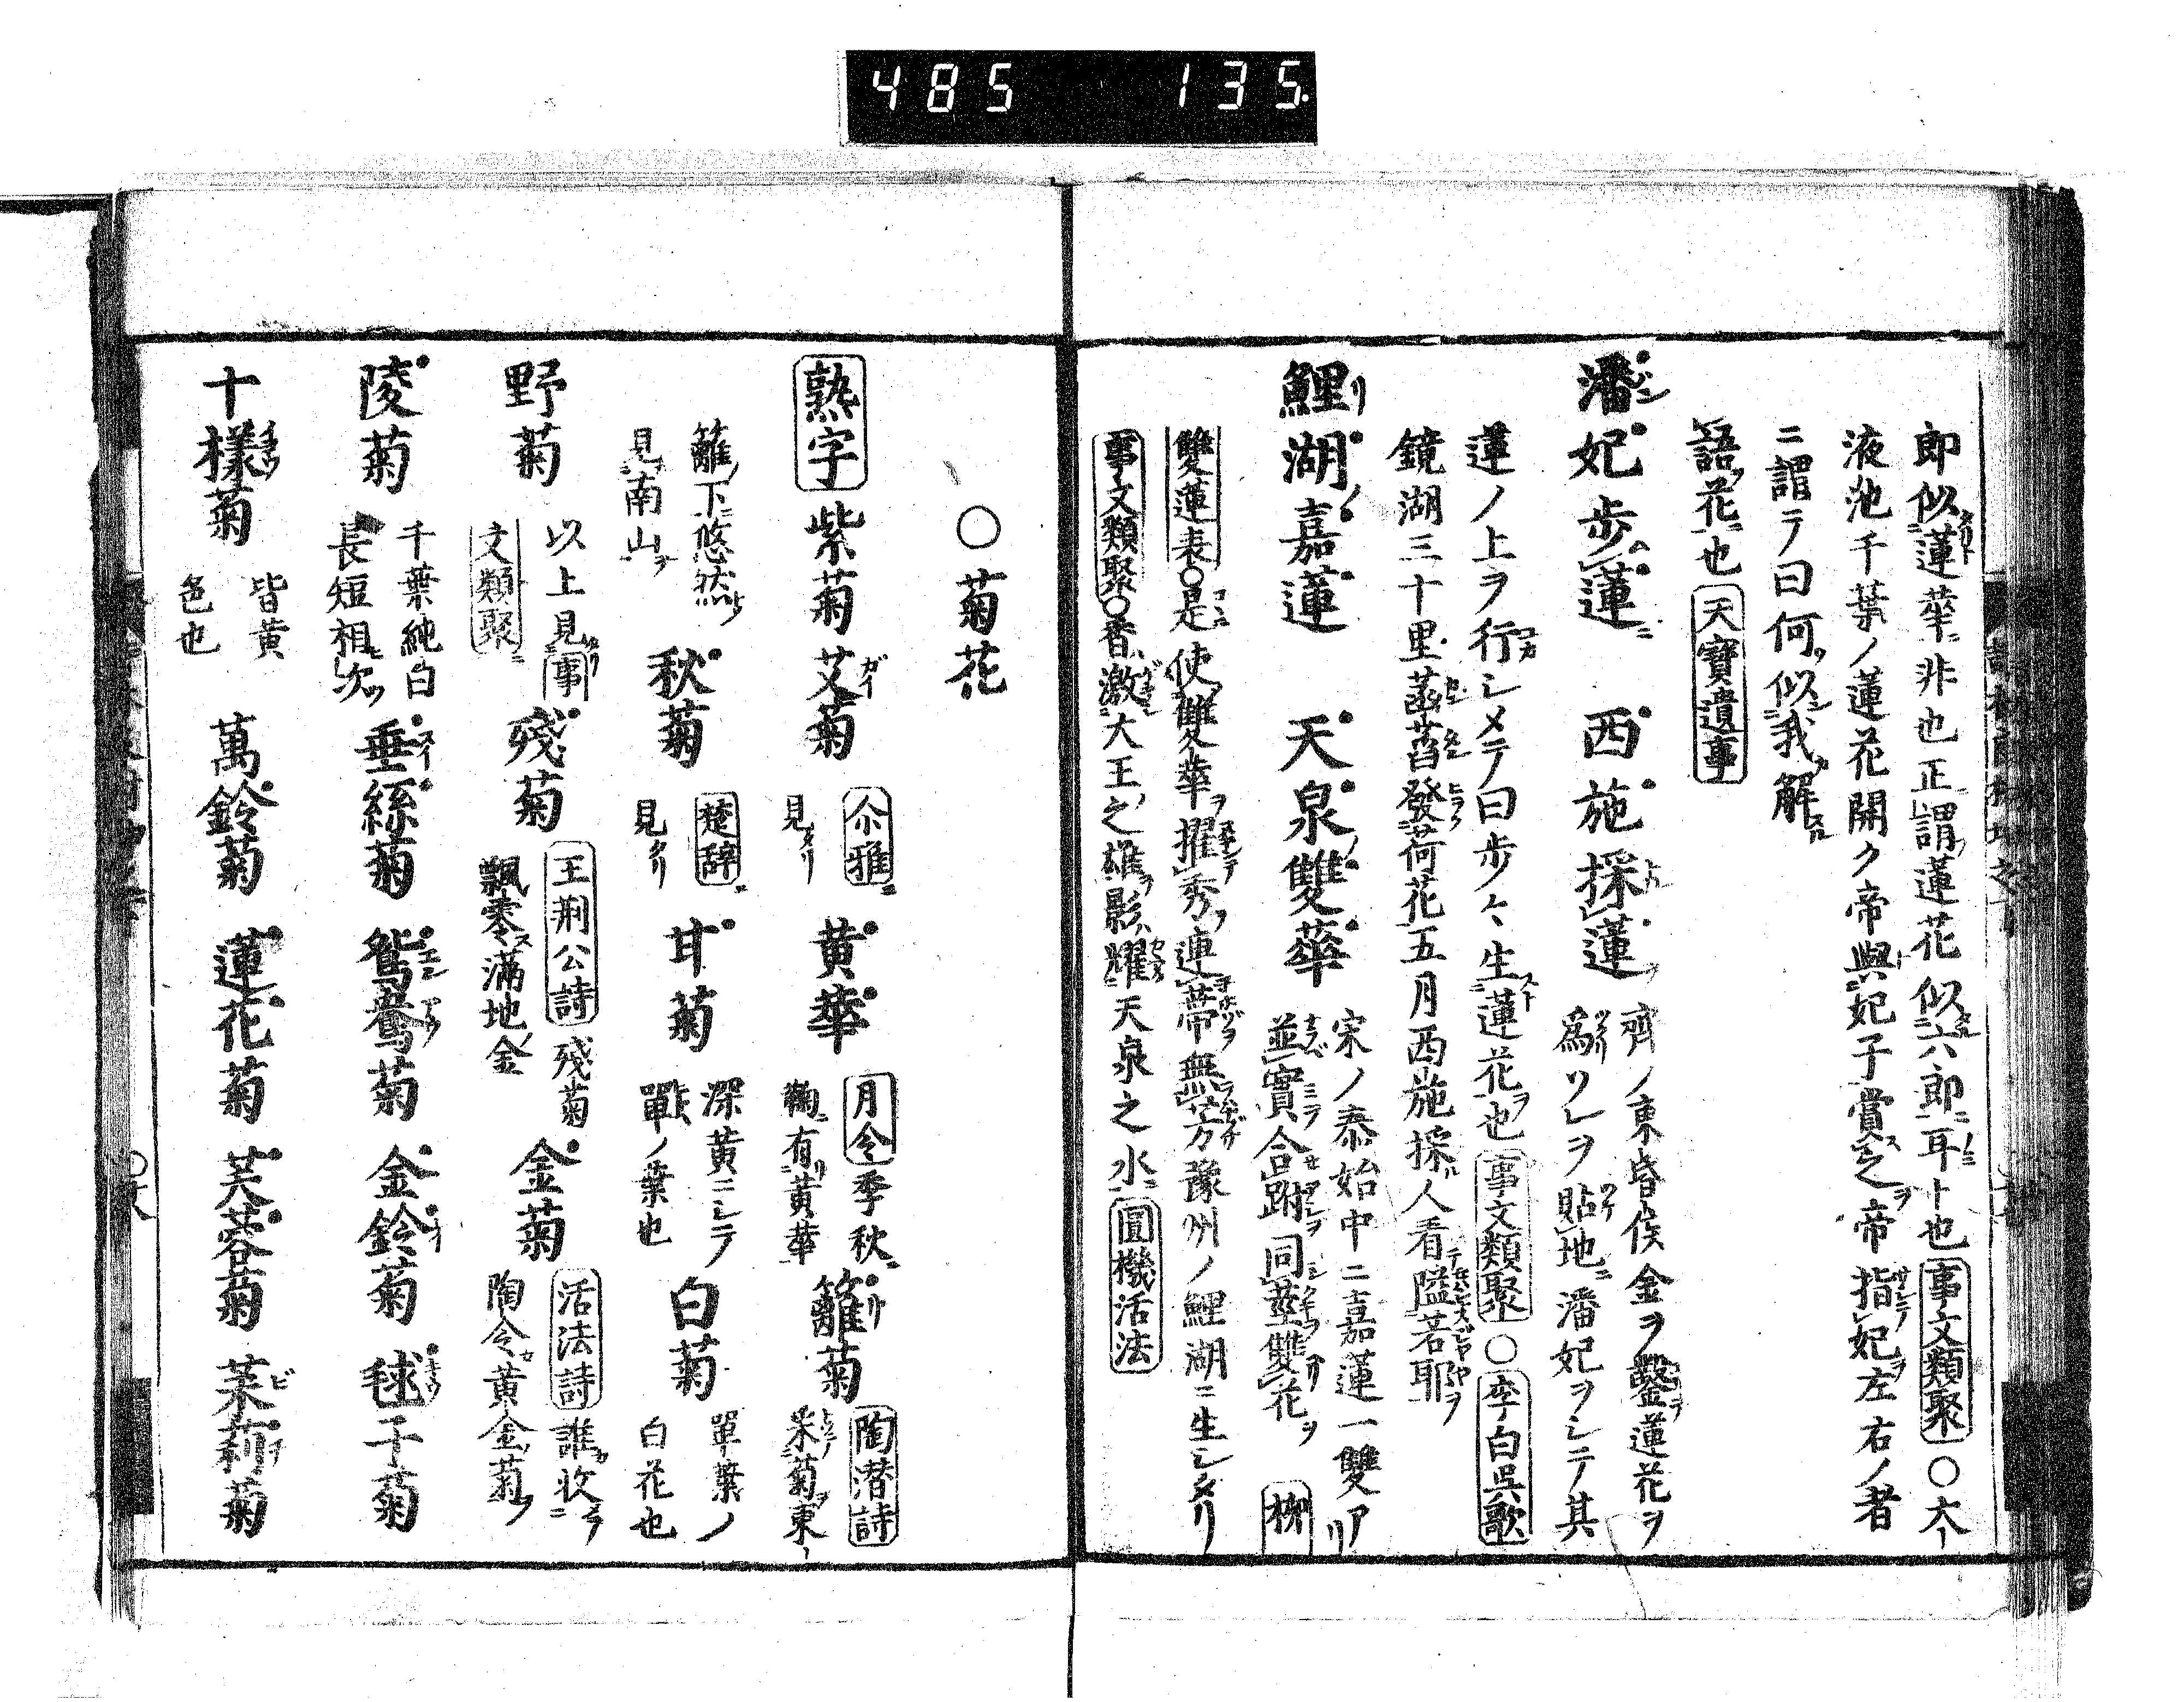 485 135.
郎似蓮華非也正謂蓮花似六郎耳ト也 事文類聚 ○太
液池千葉ノ蓮花開ク帝與妃子賞之帝指妃左右ノ者
ニ謂テ曰何似我解
語花也 天寶遺事
潘妃步蓮 西施採蓮 齊ノ東昏侯金ヲ鑿蓮花ヲ
爲リレヲ貼地潘妃ヲシテ其
蓮ノ上ヲ行シメテ曰步々生蓮花也 事文類聚 ○李白吳歌
鏡湖三十里菡萏發荷花五月西施採人看隘若耶
鯉湖嘉蓮 天泉雙華 宋ノ泰始中ニ嘉蓮一雙アリ
並實合跗同莖雙花ヲ 柳
雙蓮表○是使雙華擢秀連蒂無芳豫州ノ鯉湖ニ生シメリ
事文類聚○香激大王之雄影耀天泉之水 圓機活法
○菊花
熟字 紫菊 艾菊 尒雅
見タリ
黄華 月令季秋
鞠有黄華
籬菊 陶潜詩
采菊東
籬下悠然
見南山
秋菊 楚辞
見タリ
甘菊 深黄ニシテ
單ノ葉也
白菊 單葉ノ
白花也
野菊 以上見事
文類聚
殘菊 王荆公詩 殘菊
飄零滿地金
金菊 活法詩 誰收
陶令黄金菊
陵菊 千葉純白
長短相次
垂絲菊 鴛鴦菊 金鈴菊 毬子菊
十樣菊 皆黄
色也
萬鈴菊 蓮花菊 芙蓉菊 茉莉菊